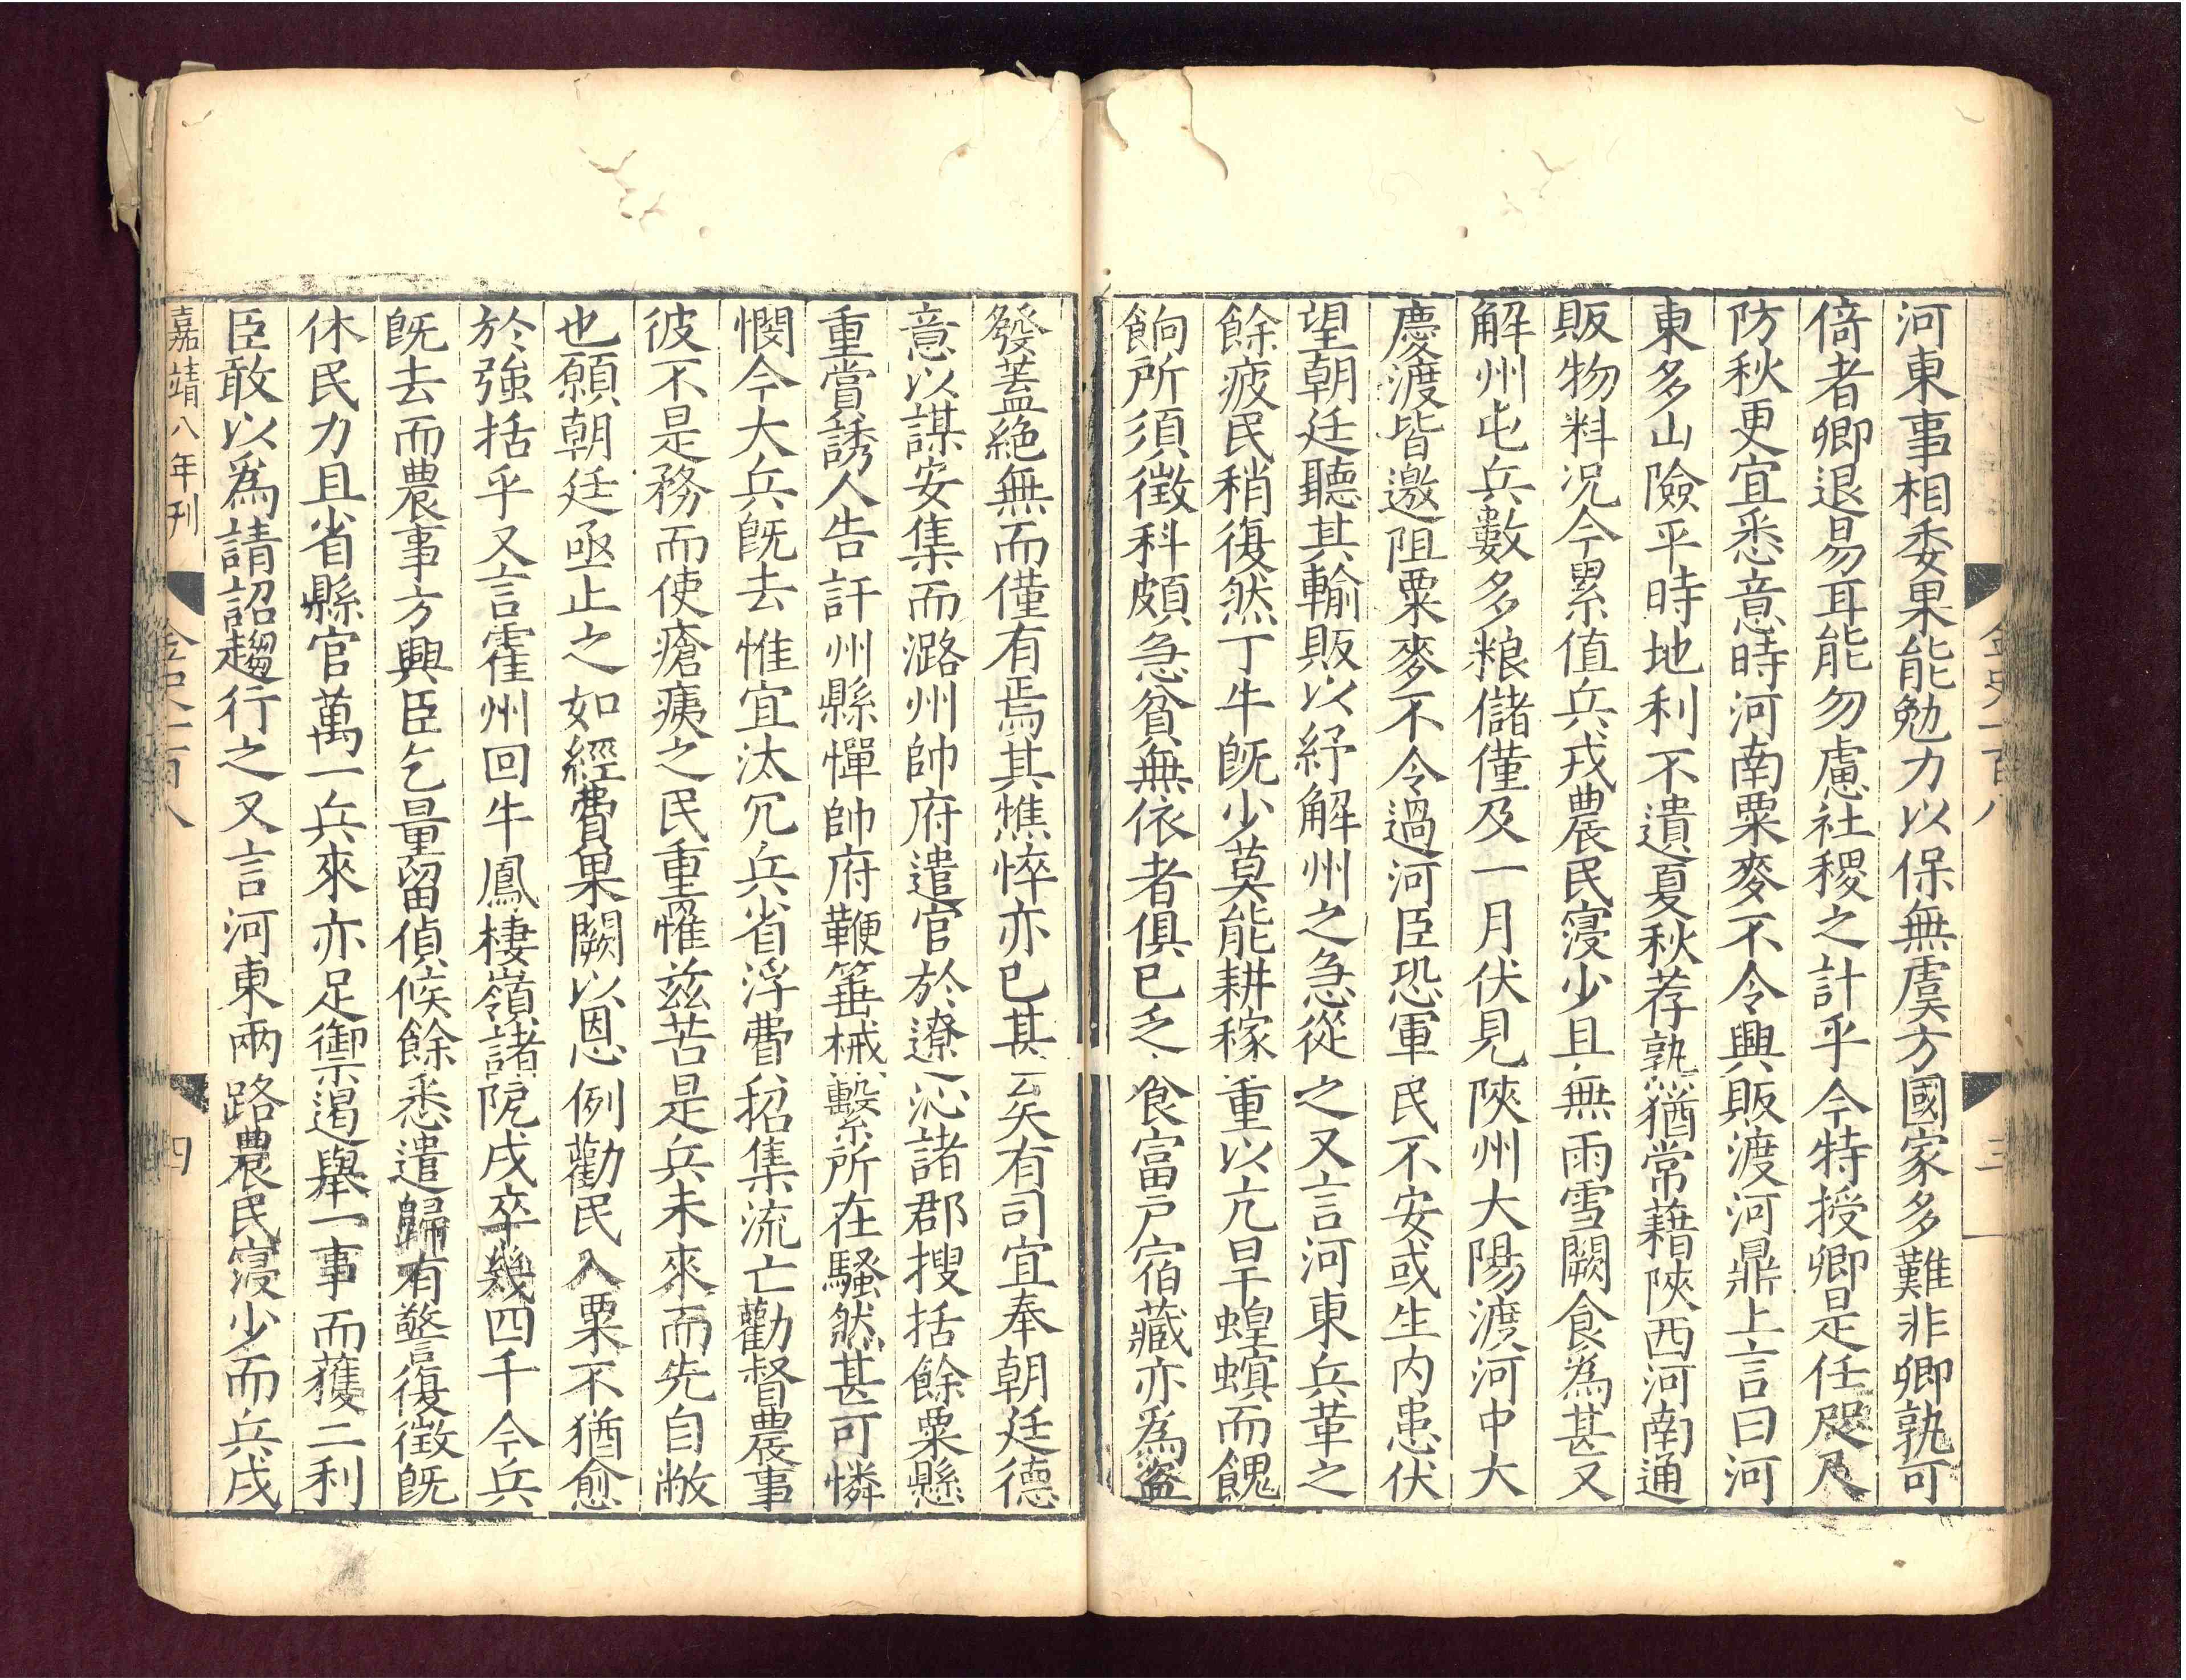 金史一百八
三
河東事相委果能勉力以保無虞方國家多難非卿孰可
倚者卿退易耳能勿慮社稷之計乎今特授卿是任咫尺
防秋更宜悉意時河南粟麥不令興販渡河鼎上言曰河
東多山險平時地利不遺夏秋荐熟猶常藉陝西河南通
販物料況今累值兵戎農民寖少且無雨雪闕食為甚又
解州屯兵數多粮儲僅及一月伏見陝州大陽渡河中大
慶渡皆邀阻粟麥不令過河臣恐軍民不安或生內患伏
望朝廷聽其輸販以紓解州之急從之又言河東兵革之
餘疲民稍復然丁牛既少莫能耕稼重以亢旱蝗螟而餽
餉所須徵科頗急貧無依者俱已乏食富戶宿藏亦為盜
發蓋絶無而僅有焉其憔悴亦已甚矣有司宜奉朝廷德
意以謀安集而潞州帥府遣官於遼沁諸郡搜括餘粟懸
重賞誘人告訐州縣憚帥府鞭箠械繫所在騷然甚可憐
憫今大兵既去惟宜汰冗兵省浮費招集流亡勸督農事
彼不是務而使瘡痍之民重罹兹苦是兵未來而先自敝
也願朝廷亟止之如經費果闕以恩例勸民入粟不猶愈
於強括乎又言霍州回牛鳳棲嶺諸阨戍卒幾四千今兵
既去而農事方興臣乞量留偵候餘悉遣歸有警復徵既
休民力且省縣官萬一兵來亦足禦遏舉一事而獲二利
臣敢以爲請詔趨行之又言河東兩路農民寖少而兵戍
嘉靖八年刊
金史一百八
四